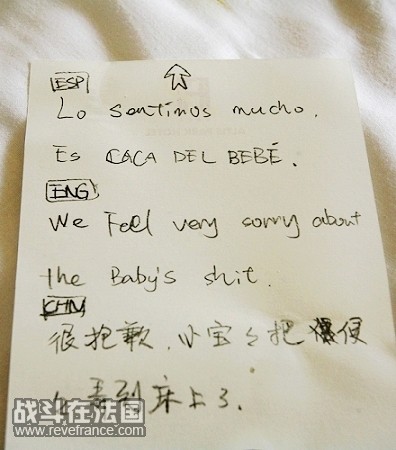 ESP
Lo sentimos mucho.
Es CACA DEL BEBÉ.
ENG
We Feel very sorry about
the Baby's shit.
CHN
很抱歉,小宝々把便
弄到床上了.
战斗在法国
www.revefrance.com